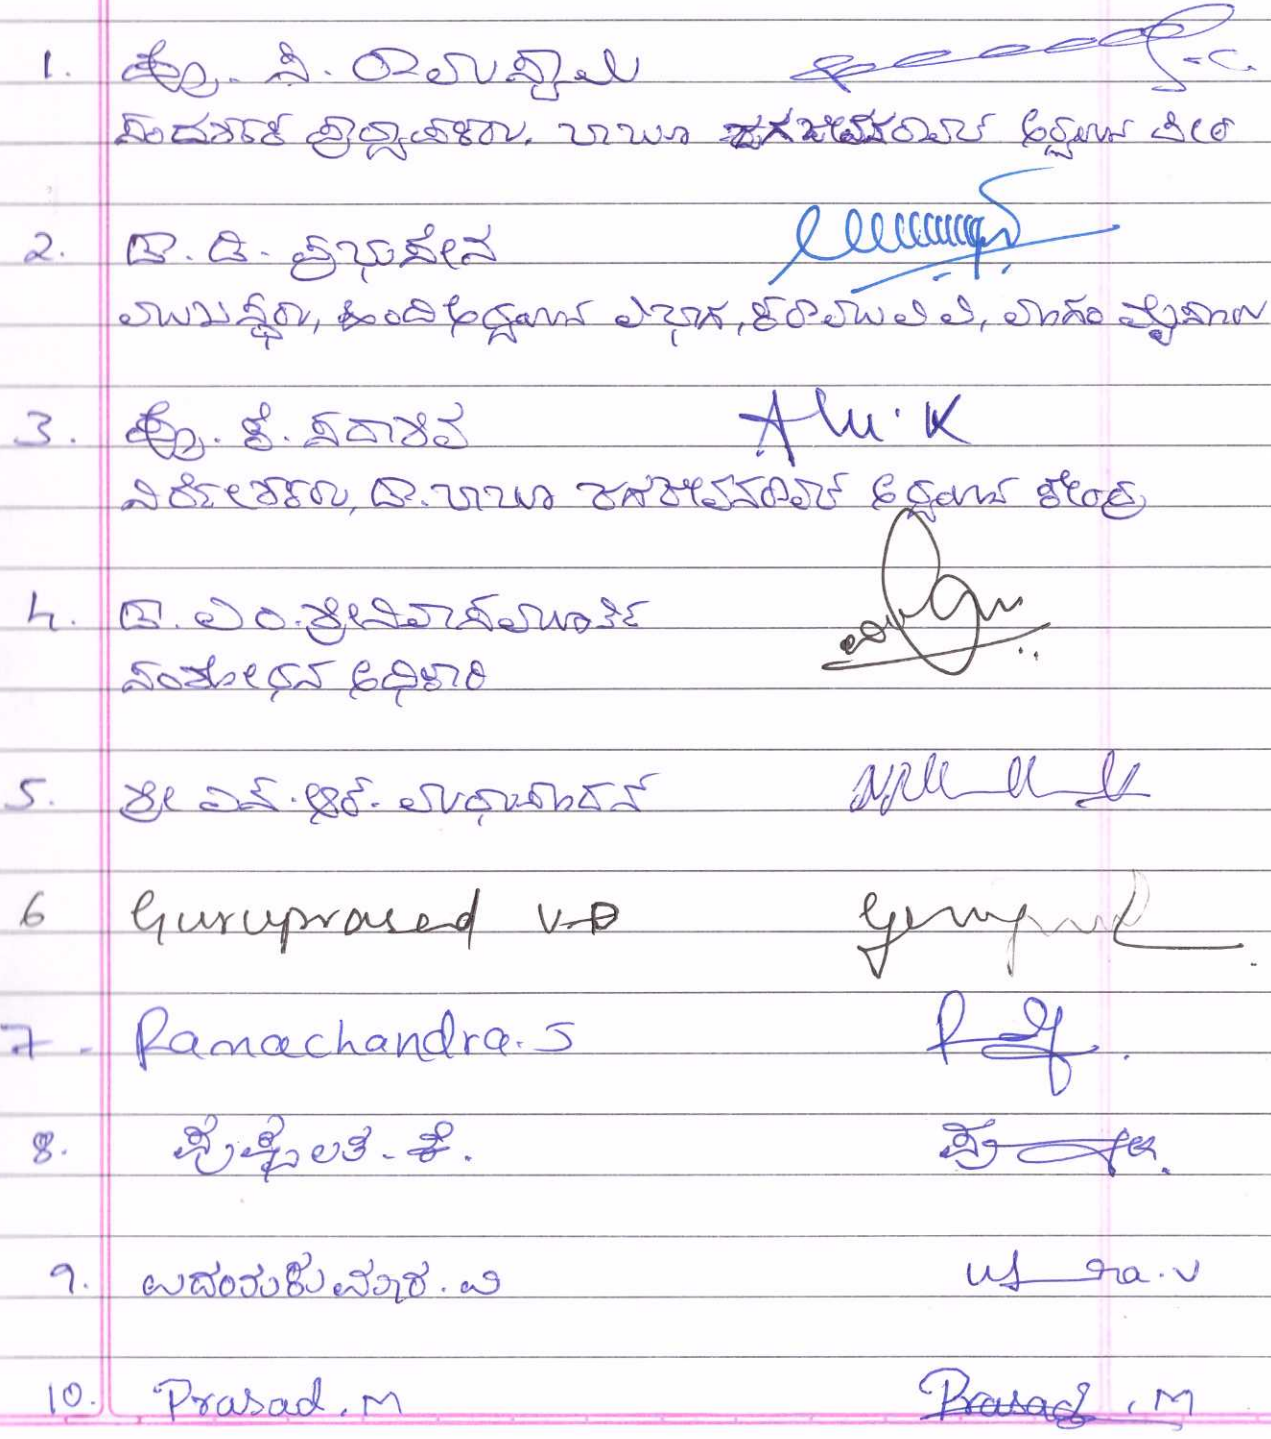 1. ಪ್ರೊ. ಸಿ. ರಾಮಸ್ವಾಮಿ
ಸಂದರ್ಶಕ ಪ್ರಾಧ್ಯಾಪಕರು, ಬಾಬೂ ಜಗಜೀವನರಾಮ್ ಅಧ್ಯಯನ ಪೀಠ
2. ಡಾ. ಡಿ. ಪ್ರಭುಸೇನ
ಮುಖ್ಯಸ್ಥರು, ಹಿಂದಿ ಅಧ್ಯಯನ ವಿಭಾಗ, ಕರಾಮುವಿವಿ, ಮಾಗಂ ಮೈಸೂರು
3. ಪ್ರೊ. ಕೆ. ಸದಾಶಿವ
ನಿರ್ದೇಶಕರು, ಡಾ. ಬಾಬೂ ಜಗಜೀವನರಾಮ್ ಅಧ್ಯಯನ ಕೇಂದ್ರ
4. ಡಾ. ಎಂ. ಶ್ರೀನಿವಾಸಮೂರ್ತಿ
ಸಂಶೋಧನ ಅಧಿಕಾರಿ
5. ಶ್ರೀ ಎನ್. ಆರ್. ಮಧುಸೂದನ್
6 Guruprasad V.D
7. Ramachandra. S
8. ಪುಷ್ಪಲತ. ಕೆ.
9. ಉದಂತುಕುಮಾರ. ವಿ
10. Prasad. M Prasad. M